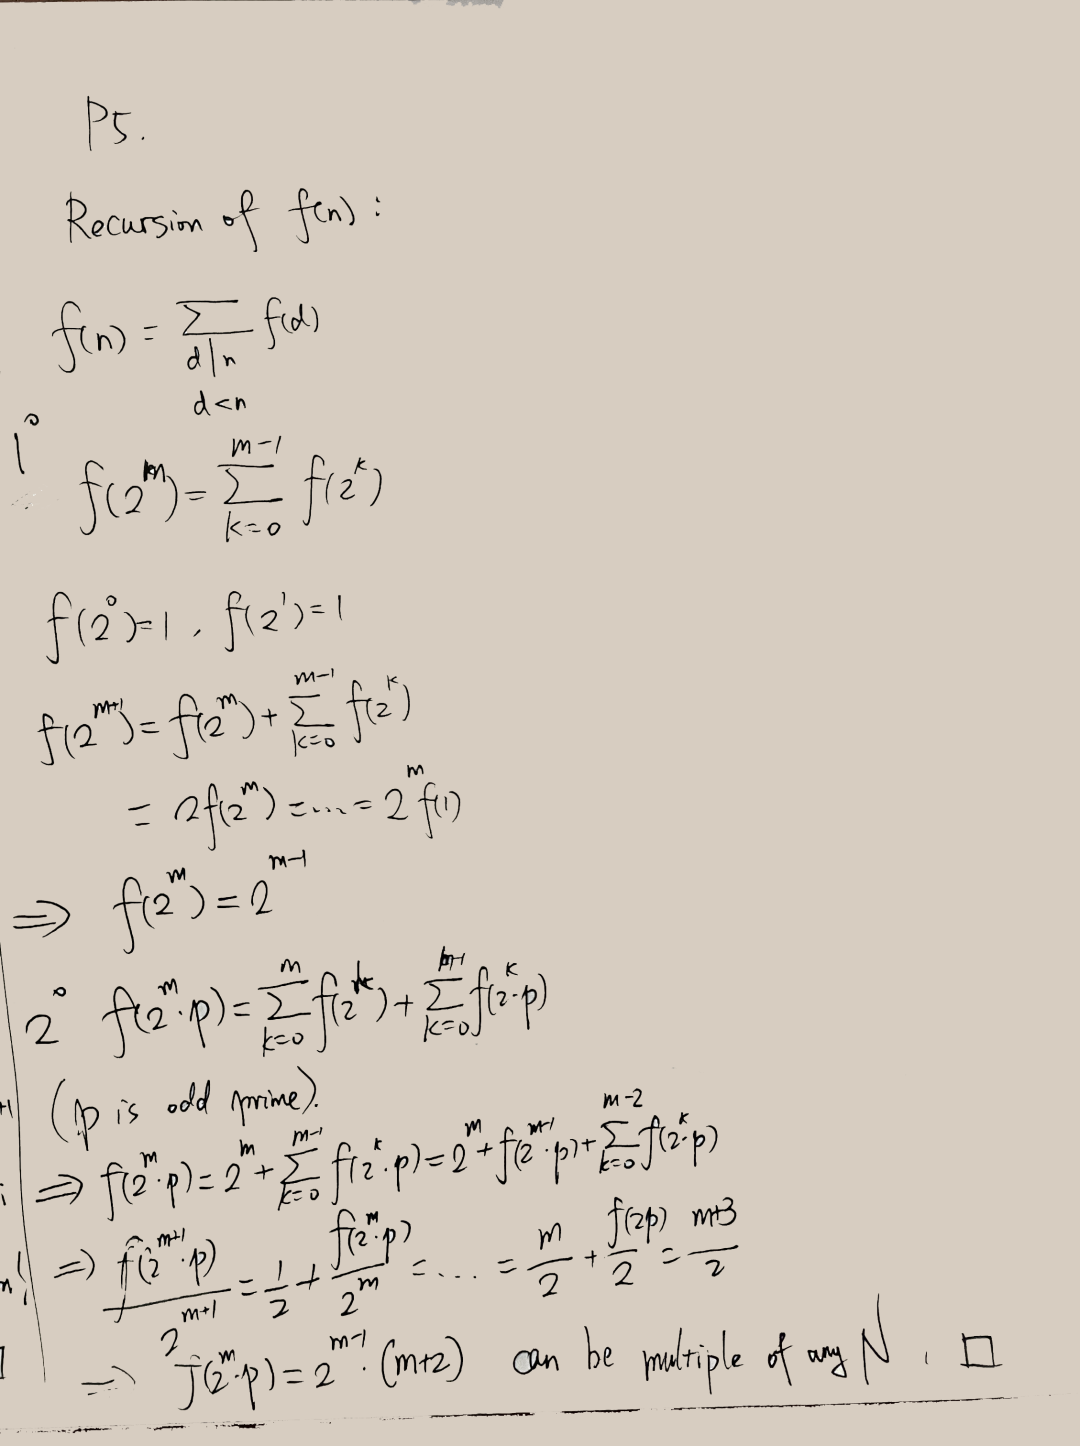 P5.
Recursion of f(n) :
f(n) = ∑_{d|n, d<n} f(d)
1° f(2^m) = ∑_{k=0}^{m-1} f(2^k)
f(2^0)=1, f(2^1)=1
f(2^{m+1}) = f(2^m) + ∑_{k=0}^{m-1} f(2^k)
= 2f(2^m) = .... = 2^m f(1)
⇒ f(2^m) = 2^{m-1}
2° f(2^m·p) = ∑_{k=0}^{m} f(2^k) + ∑_{k=0}^{m-1} f(2^k·p)
(p is odd prime).
⇒ f(2^m·p) = 2^m + ∑_{k=0}^{m-1} f(2^k·p) = 2^m + f(2^{m-1}·p) + ∑_{k=0}^{m-2} f(2^k·p)
⇒ f(2^{m+1}·p)/2^{m+1} = 1/2 + f(2^m·p)/2^m = .... = m/2 + f(2p)/2 = (m+3)/2
⇒ f(2^m·p) = 2^{m-1}·(m+2) can be multiple of any N. □